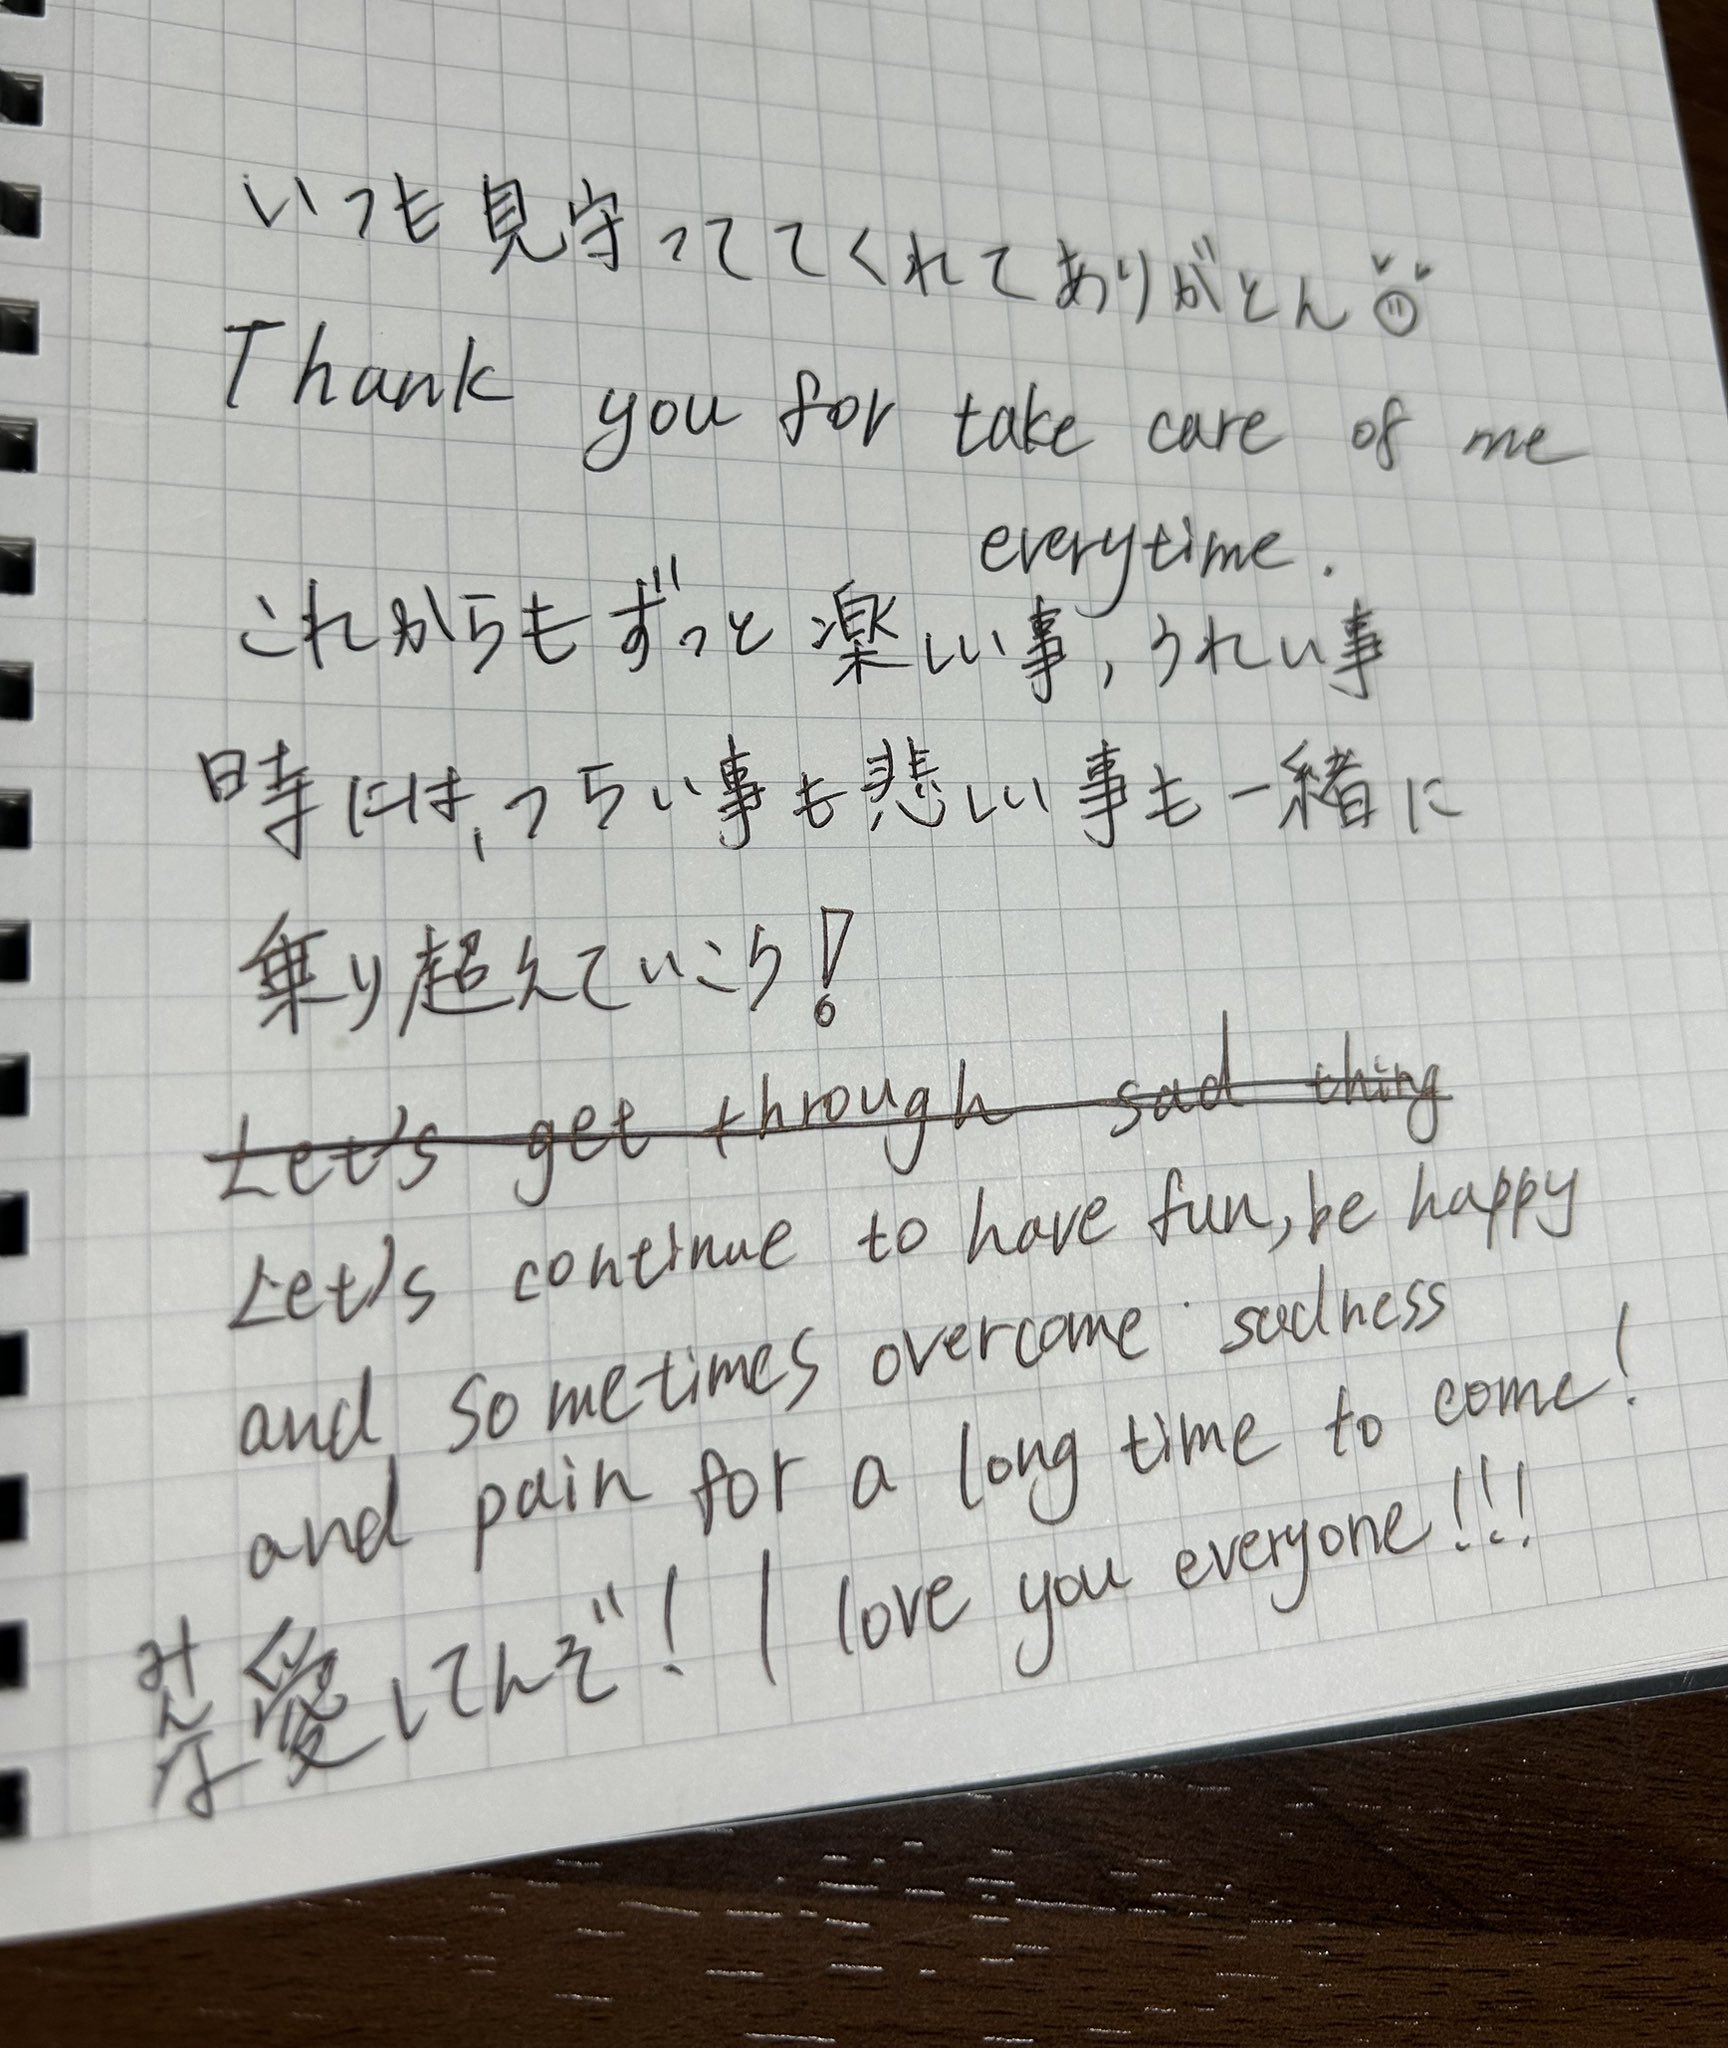 いつも見守っててくれてありがとん
Thank you for take care of me
everytime.
これからもずっと楽しい事,うれい事
時には,つらい事も悲しい事も一緒に
乗り超えていこう!
Let's get through sad thing
Let's continue to have fun, be happy
and sometimes overcome sadness
and pain for a long time to come!
みんな愛してんぞ! I love you everyone!!!